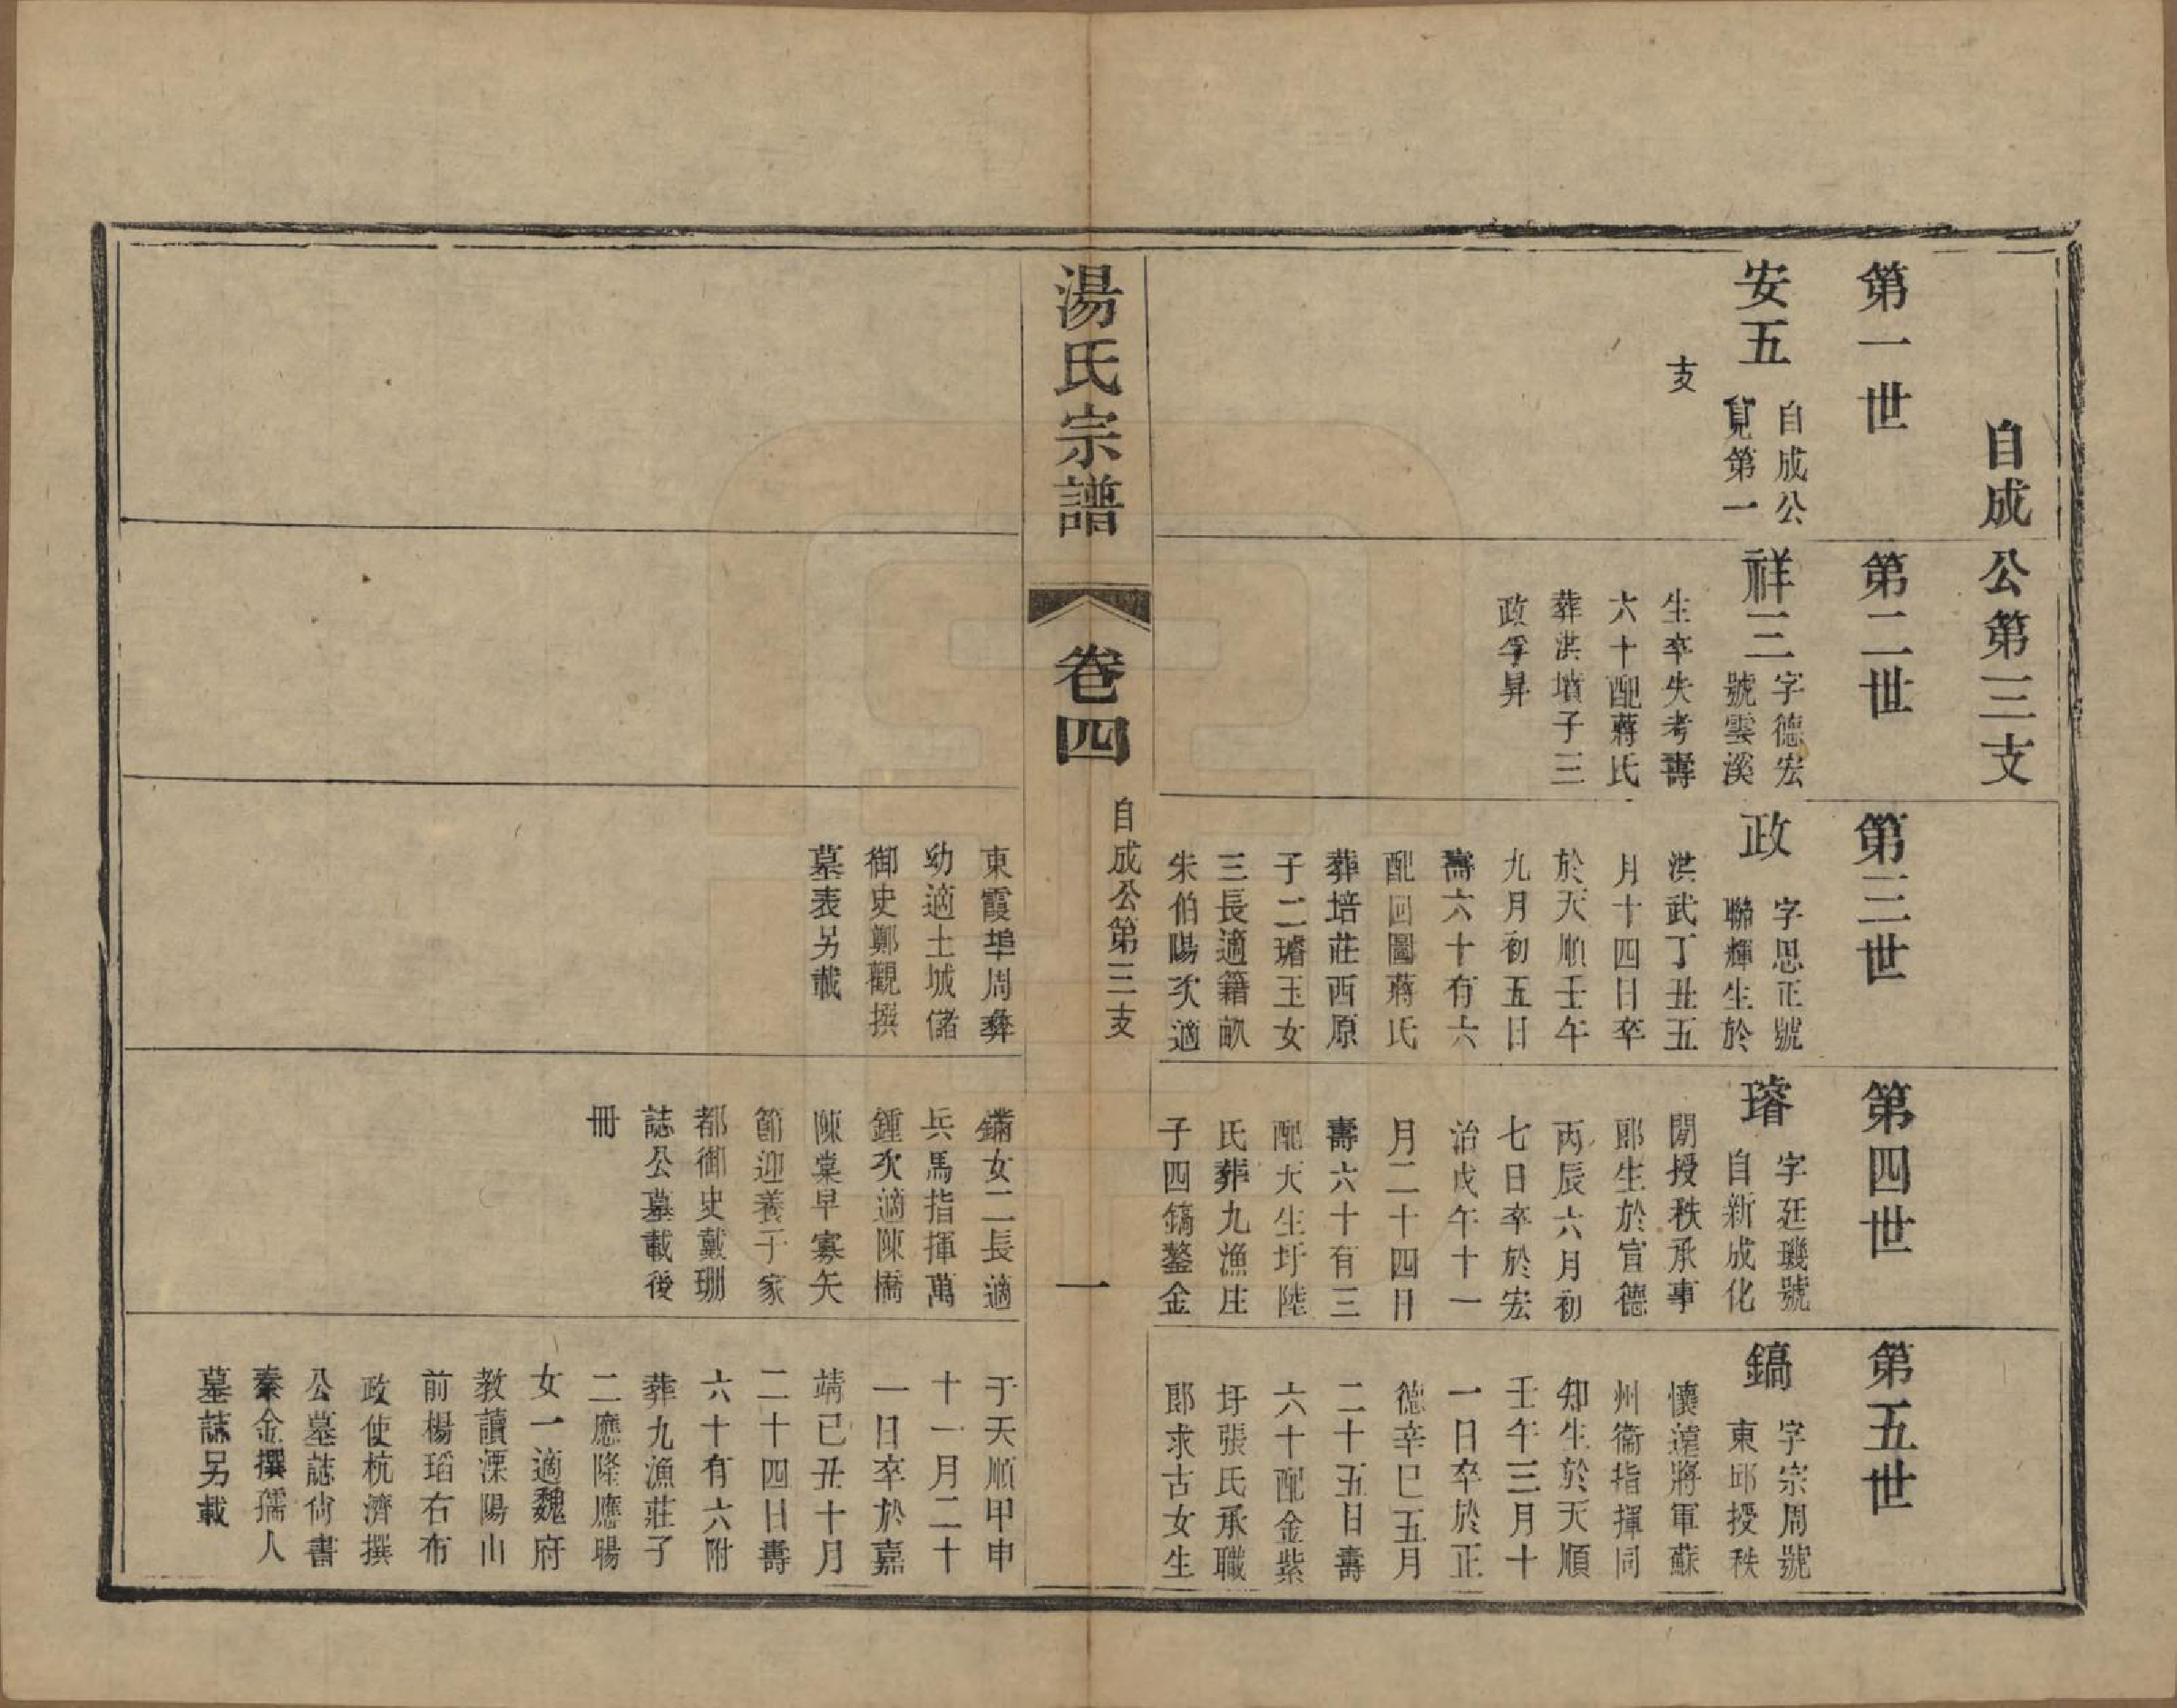 自成公第三支
第一世
安五
自成公
見第一
支
第二世
祥三
字德宏
號雲溪
生卒失考壽
六十配蔣氏
葬洪墳子三
政孚昇
第三世
政
字思正號
聯輝生於
洪武丁丑五
月十四日卒
於天順壬午
九月初五日
壽六十有六
配回圖蔣氏
葬培莊西原
子二璿玉女
三長適籍畝
朱伯陽次適
第四世
璿
字廷璣號
自新成化
閒授秩承事
郎生於宣德
丙辰六月初
七日卒於宏
治戊午十一
月二十四日
壽六十有三
配大生圩陸
氏葬九漁庄
子四鎬鏊金
第五世
鎬
字宗周號
東邱授秩
懷遠將軍蘇
州衞指揮同
知生於天順
壬午三月十
一日卒於正
德辛巳五月
二十五日壽
六十配金紫
圩張氏承職
郎求古女生
湯氏宗譜
卷四
自成公第三支
一
東霞埠周彝
幼適土城儲
御史鄭觀撰
墓表另載
鏞女二長適
兵馬指揮萬
鍾次適陳橋
陳棠早寡矢
節迎養于家
都御史戴珊
誌公墓載後
冊
于天順甲申
十一月二十
一日卒於嘉
靖己丑十月
二十四日壽
六十有六附
葬九漁莊子
二應隆應暘
女一適魏府
教讀溧陽山
前楊瑫右布
政使杭濟撰
公墓誌尙書
秦金撰孺人
墓誌另載